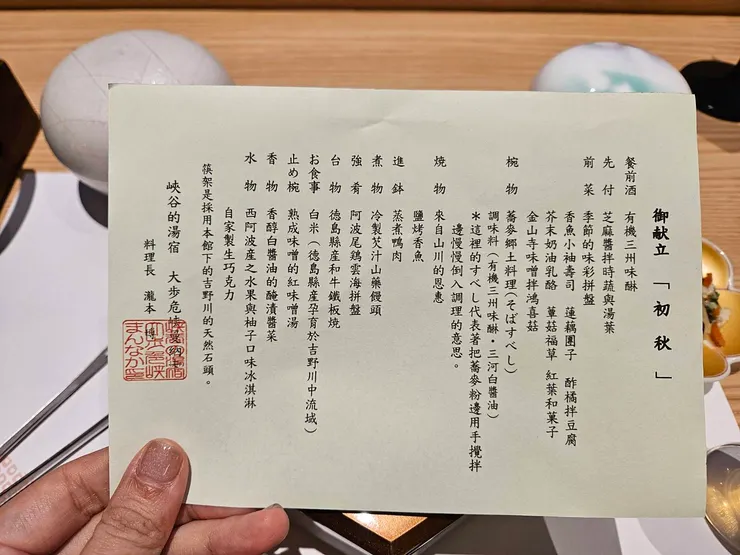 御献立 「初秋」
餐前酒 有機三州味醂
先付 芝麻醬拌時蔬與湯葉
前菜 季節的味彩拼盤
香魚小袖壽司 蓮藕團子 酢橘拌豆腐
芥末奶油乳酪 蕈菇福草 紅葉和菓子
金山寺味噌拌鴻喜菇
椀物 蕎麥鄉土料理(そばすべし)
調味料(有機三州味醂・三河白醬油)
*這裡的すべし代表著把蕎麥粉邊用手攪拌
邊慢慢倒入調理的意思。
燒物 來自山川的恩惠
鹽烤香魚
進鉢 蒸煮鴨肉
煮物 冷製芡汁山藥饅頭
強肴 阿波尾鷄雲海拼盤
台物 德島縣産和牛鐵板燒
お食事 白米(德島縣産孕育於吉野川中流域)
止め椀 熟成味噌的紅味噌湯
香物 香醇白醬油的醃漬醬菜
水物 西阿波産之水果與柚子口味冰淇淋
自家製生巧克力
筷架是採用本館下的吉野川的天然石頭。
峽谷的湯宿 大步危峽
料理長 瀧本